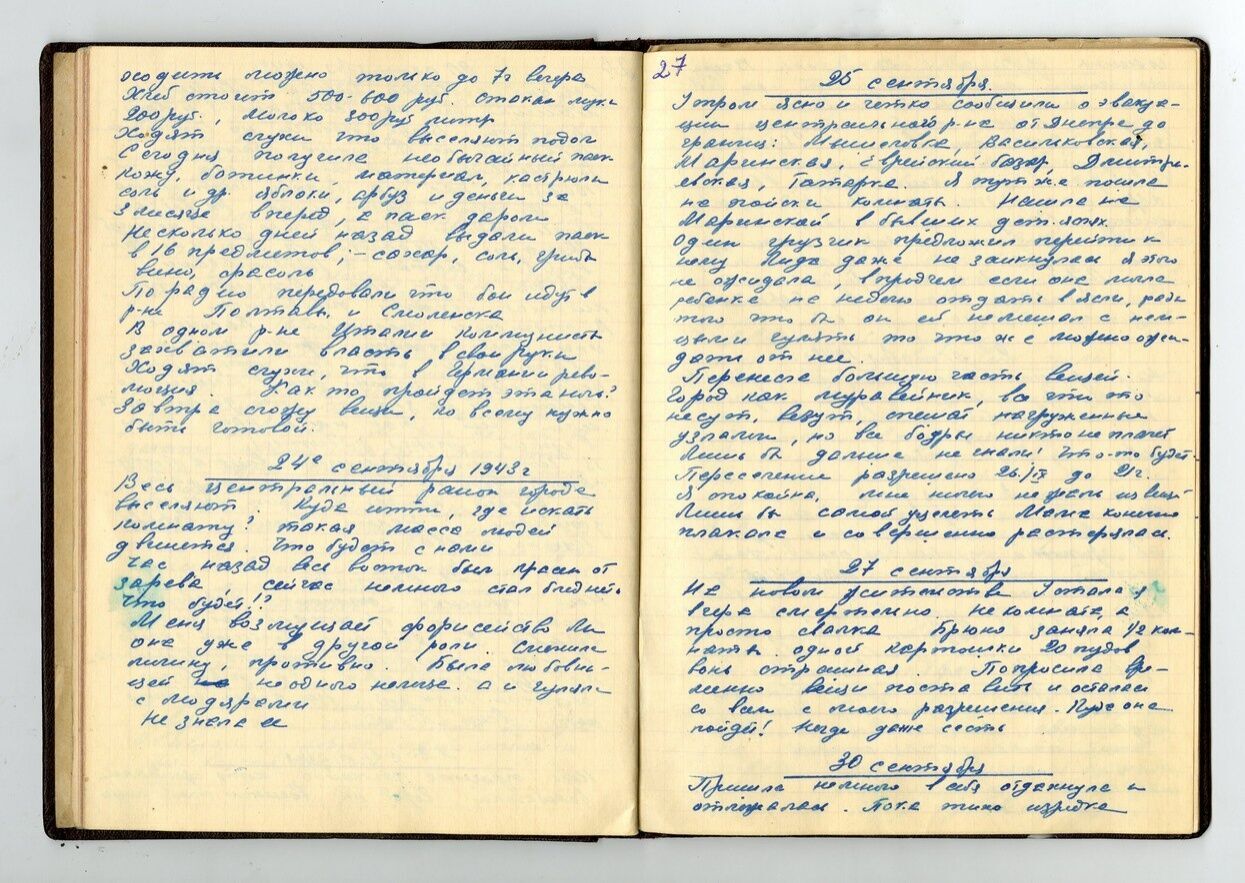 ходить можно только до 7ч вечера
Хлеб стоит 500-600 руб. стакан муки
200руб., молоко 300руб литр
Ходят слухи что выселяют подол
Сегодня получила необычайный паек
кожу, ботинки, материал, кастрюли
соль и др. яблоки, арбуз и деньги за
3 месяца вперед, а паек даром
Несколько дней назад выдали паек
в 16 предметов, - сахар, соль, грибы
вино, фасоль
По радио передовали что бои идут в
р-не Полтавы и Смоленска
В одном р-не Италии коммунисты
захватили власть в свои руки
Ходят слухи, что в Германии рево-
люция. Как то пройдет эта ночь?
Завтра сложу вещи, ко всему нужно
быть готовой.
24го сентября 1943г
Весь центральный район города
выселяют. Куда итти, где искать
комнату? такая масса людей
двинется. Что будет с нами
Час назад весь восток был красен от
зарева, сейчас немного стал бледнеть
Что будет!?
Меня возмущает форисейство Ли
она уже в другой роли. Сменила
личину, противно. Была любовни-
цей не одного немца. а и гуляла
с мадярами
Не знала ее
27
25 сентября.
Утром ясно и четко сообщили о эвакуа-
ции центральной р-на от Днепра до
границ: Мышеловка, Васильковская,
Маринская, Еврейский базар, Дмитри-
евская, Татарка. Я тут же пошла
на поиски комнаты. Нашла на
Маринской в бывших дет. яслях.
Один грузчик предложил перейти к
нему Лида даже не заикнулась я этого
не ожидала, впрочем если она могла
ребенка на неделю отдать в ясли, ради
того что б он ей не мешал с нем-
цами гулять то что же можно ожи-
дать от нее.
Перенесла большую часть вещей.
Город как муравейник, все что то
несут, везут, спешат нагруженные
узлами, но все бодры никто не плачет
Лишь бы дальше не гнали! Что-то будет
Переселение разрешено 26/IX до 21ч.
Я спокойна, мне ничего не жаль из вещей
Лишь бы самой уцелеть Мама конечно
плакала и совершенно растерялась.
27 сентября
На новом жительстве Устала я
вчера смертельно. не комната, а
просто свалка Брюно заняла 1/2 ком-
наты. одной картошки 20 пудов
вонь страшная. Попросила вре-
менно вещи поставить и осталась
со всем с моего разрешения. Куда она
пойдет! Негде даже сесть
30 сентября
Пришла немного в себя отдохнула и
отлежалась. Пока тихо изредка